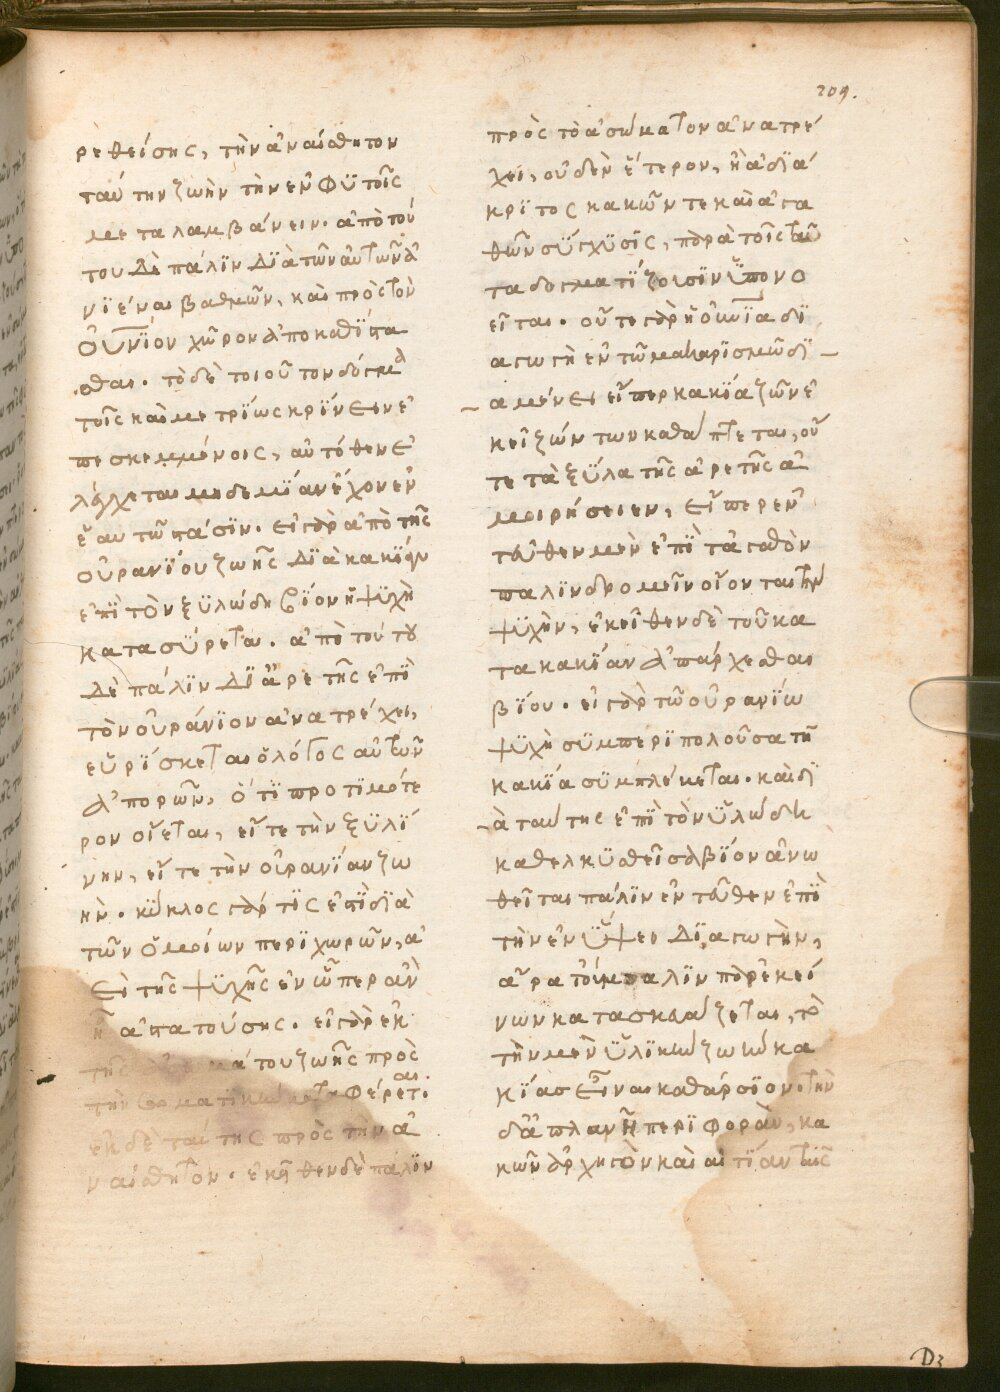 209.
ρεθείσης, τὴν ἀναίσθητον
ταύτην ζωὴν τὴν ἐν φϋτοῖς
μεταλαμβάνειν. ἀπὸ τού
του δὲ πάλϊν δϊὰ τῶν αὐτῶν ἀ
νϊέναι βαθμῶν, καὶ πρὸς τὸν
οὐνϊον χῶρον ἀποκαθΐστα
σθαι. τὸ δὲ τοιοῦτον δόγμα
τοῖς καὶ μετρΐως κρΐνειν ἐ
πεσκεμμένοις, αὐτόθεν ἐ
λέγχεται μηδεμΐαν ἔχον ἐν
ἑαυτῶ στάσϊν. εἰ γὰρ ἀπὸ τῆς
οὐρανΐου ζωῆς δϊὰ κακΐαν
ἐπῒ τὸν ξϋλώδη βΐον ἡ ψϋχὴ
κατασύρεται. ἀπὸ τούτου
δὲ πάλϊν δϊ ἀρετῆς ἐπῒ
τὸν οὐράνϊον ἀνατρέχει,
εὑρΐσκεται ὁ λόγος αὐτῶν
ἀπορῶν, ὅ τϊ προτϊμότε
ρον οἴεται, εἴτε τὴν ξϋλΐ
νην, εἴτε τὴν οὐρανΐαν ζω
ὴν. κΰκλος γάρ τΐς ἐστϊ διὰ
τῶν ὁμοίων περϊχωρῶν, ἀ
εὶ τῆς ψϋχῆς ἐν ὧπερ ἀν
ἦ ἀστατούσης. εἰ γὰρ ἐκ
τῆς ἀσωμάτου ζωῆς πρὸς
τὴν σωματϊκὴν καταφέρεται.
ἐκ δὲ ταύτης πρὸς τὴν ἀ
ναίσθητον. ἐκεῖθεν δὲ πάλϊν
πρὸς τὸ ἀσώματον ἀνατρέ
χει, οὐδὲν ἕτερον, ἢ ἀδϊά
κρϊτος κακῶν τε καὶ ἀγα
θῶν σύγχϋσϊς, παρὰ τοῖς ταῦ
τα δογματΐζουσϊν ὑπονο
εῖται. οὔτε γὰρ ἡ οὐνΐα δϊ
αγωγὴ ἐν τῶ μακαρϊσμῶ δϊ
αμένει εἴπερ κακΐα ζῶν ἐ
κεῖ ζώντων καθάπτεται, οὔ
τε τὰ ξΰλα τῆς ἀρετῆς ἀ
μοιρήσειεν, εἴπερ ἐν
τεῦθεν μὲν ἐπῒ τἀγαθὸν
παλϊνδρομεῖν οἴονται τὴν
ψϋχὴν, ἐκεῖθεν δὲ τοῦ κα
τὰ κακΐαν ἀπάρχεσθαι
βΐου. εἰ γὰρ τῶ οὐρανΐω
ψϋχὴ σϋμπερϊπολοῦσα τῆ
κακΐα σϋμπλέκεται. καὶ δϊ
ὰ ταύτης ἐπῒ τὸν ὑλώδη
καθελκϋσθεῖσα βΐον ἀνω
θεῖται πάλϊν ἐντεῦθεν ἐπῒ
τὴν ἐν ὕψει δϊαγωγὴν,
ἄρα τοὔμπαλϊν παρ ἐκεί
νων κατασκευάζεται, τὸ
τὴν μὲν ὑλϊκὴν ζωὴν κα
κΐας εἶναι καθάρσϊον. τὴν
δὲ ἀπλανῆ περϊφορὰν, κα
κῶν ἀρχηγὸν καὶ αἰτΐαν ταῖς
D3